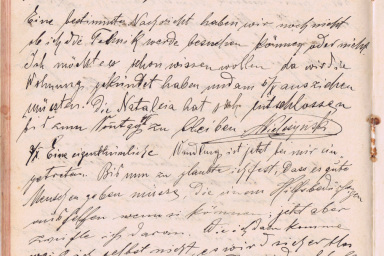 Eine bestimmte Nachricht haben wir noch nicht
ob ich die Fabrik werde beziehen können oder nicht.
Ich möchte es schon wissen wollen da wir die
Wohnung gekündet haben und am 1/4 ausziehen
müssten. Die Natalcia hat sich entschlossen
bis zum zu bleiben
9/2 Eine eigenthümliche Wandlung ist jetzt bei mir ein-
getreten. Bis nun zu glaubte ich fest, dass es gute
Menschen geben müsse, die einem Hilfsbedürftigen
aushelfen, wenn sie können; jetzt aber
zweifle ich daran. Wie ich dazu komme
weiß ich selbst nicht, es wird sicher blos